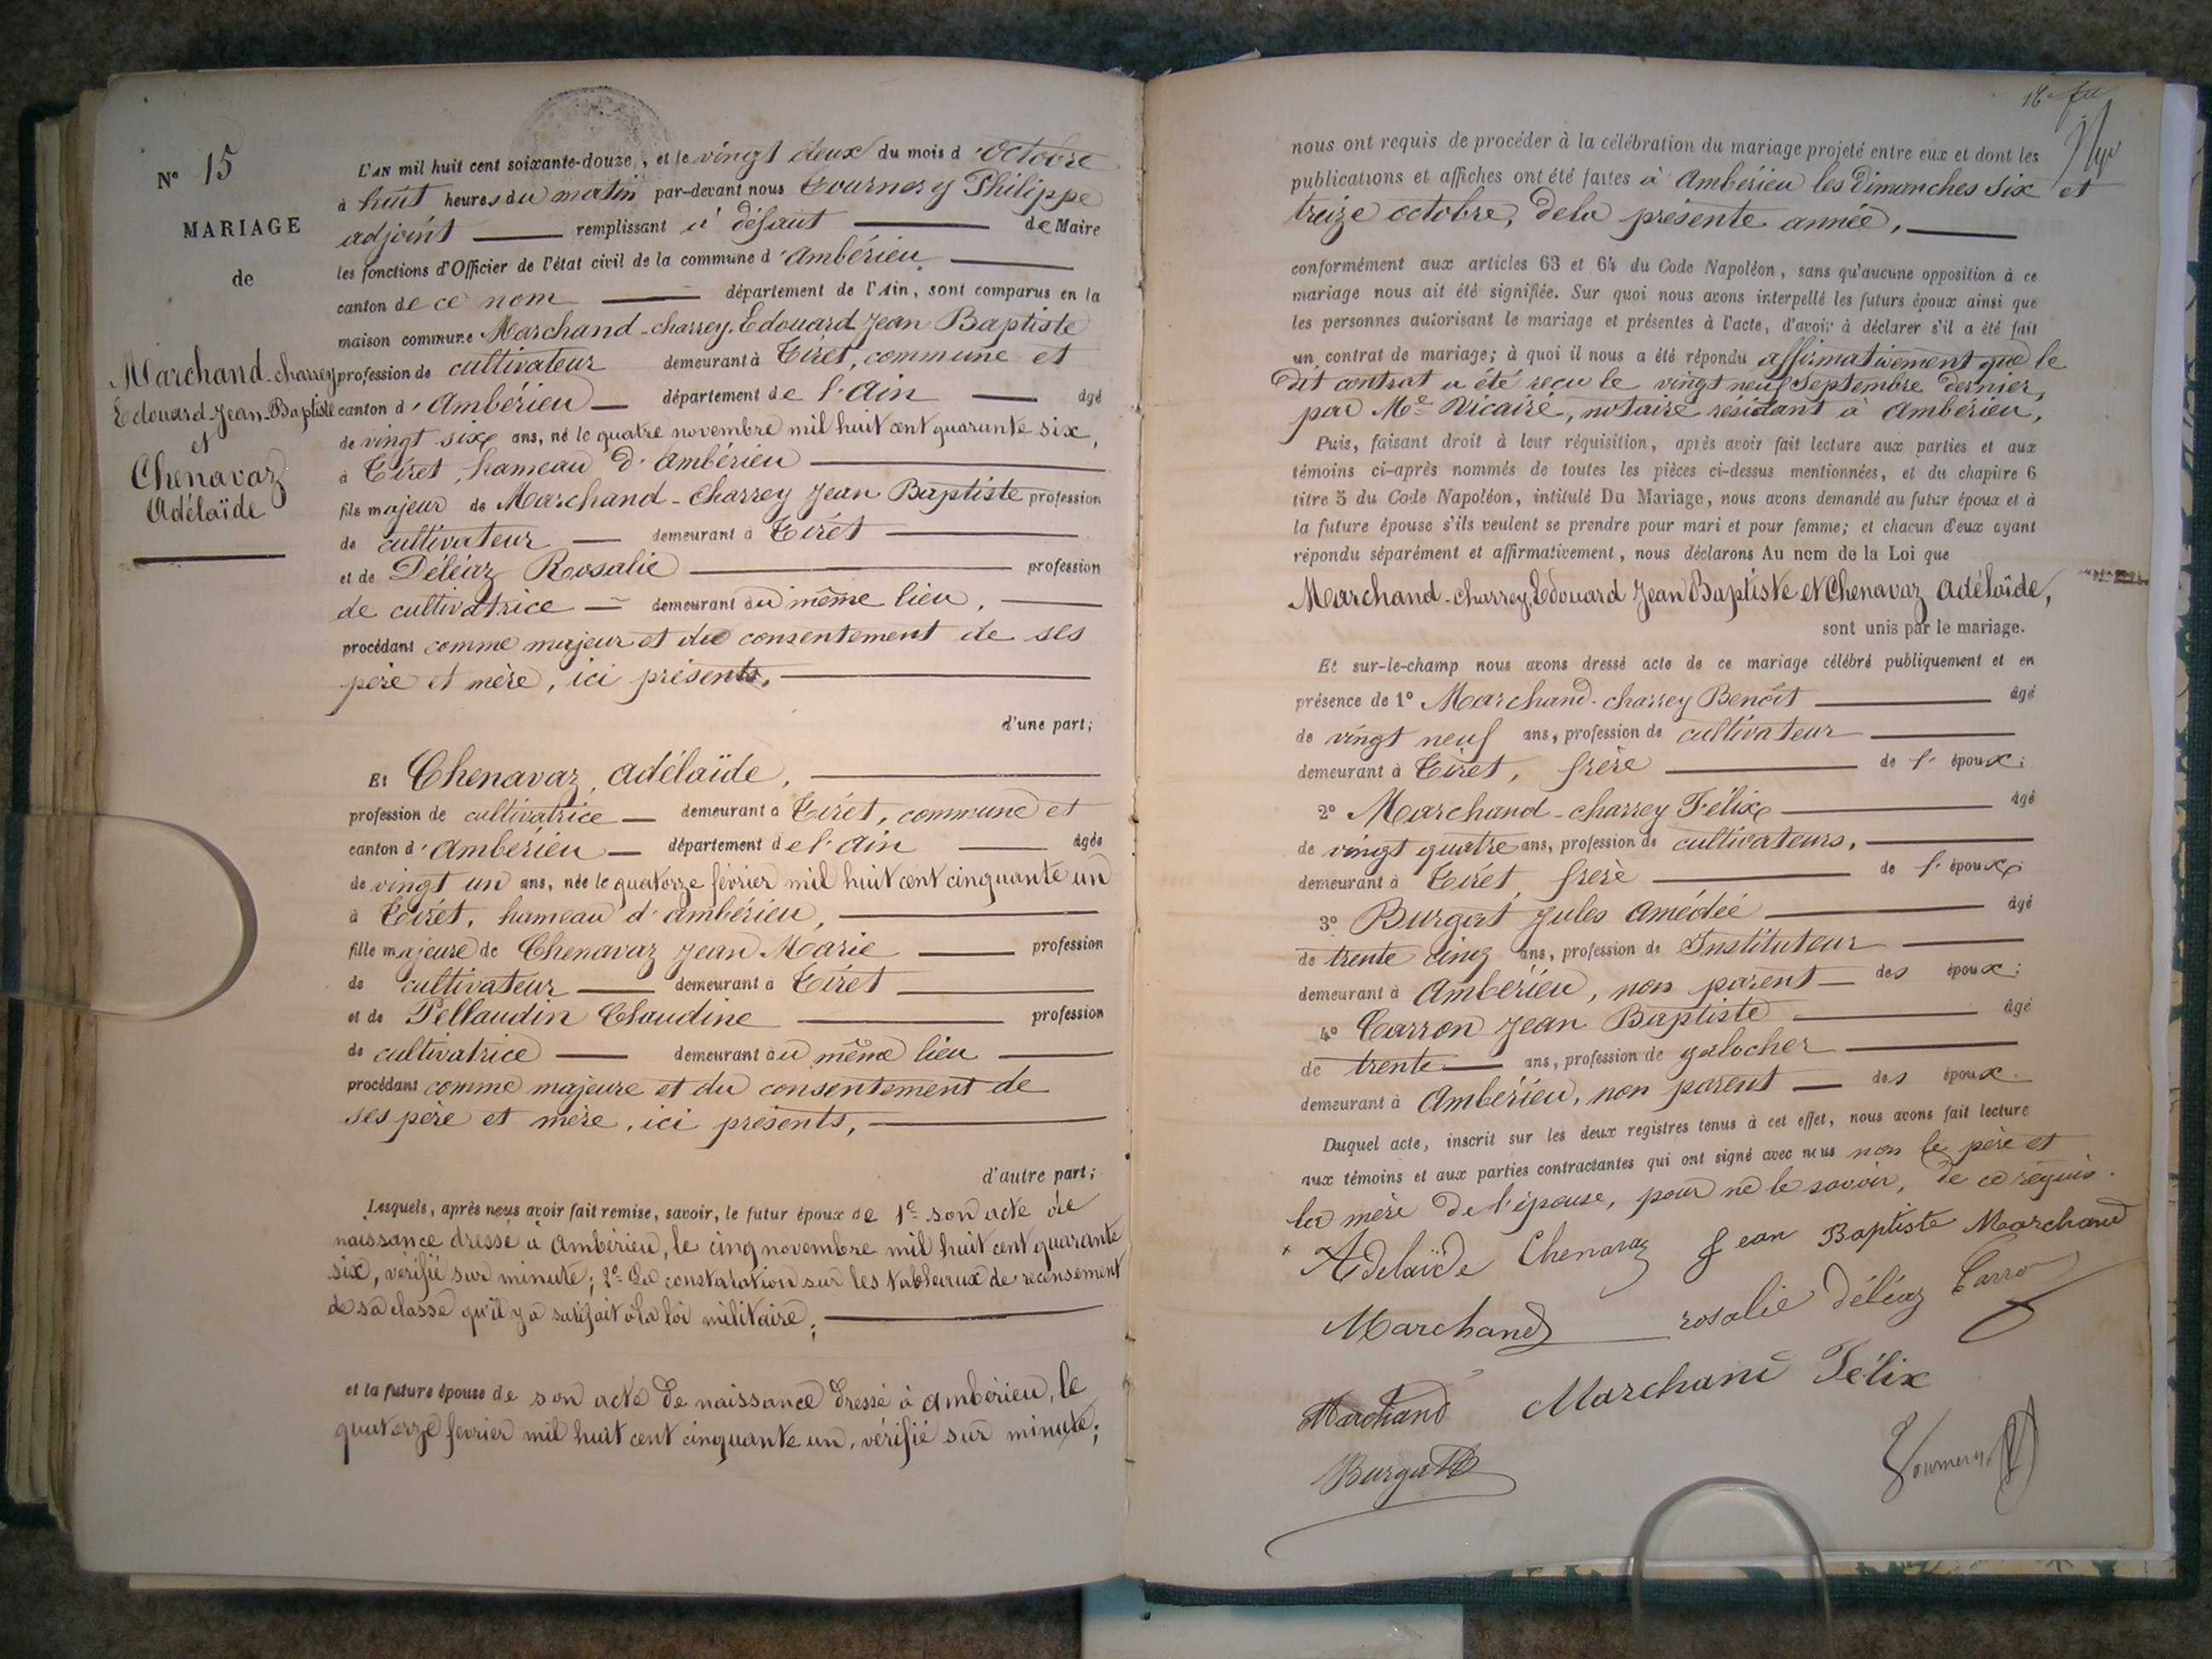 N° 15
MARIAGE
de
Marchand-charrey
Edouard-Jean-Baptiste
et
Chenavaz
Adélaïde
L'AN mil huit cent soixante-douze, et le vingt deux du mois d'octobre
à huit heures du matin par-devant nous Tournery Philippe
adjoint remplissant à défaut de Maire
les fonctions d'Officier de l'état civil de la commune d'Ambérieu
canton de ce nom département de l'Ain, sont comparus en la
maison commune Marchand-charrey Edouard Jean Baptiste
profession de cultivateur demeurant à Tiret, commune et
canton d'Ambérieu département de l'Ain âgé
de vingt six ans, né le quatre novembre mil huit cent quarante six,
à Tiret, hameau d'Ambérieu
fils majeur de Marchand-Charrey Jean Baptiste profession
de cultivateur demeurant à Tirét
et de Déléaz Rosalie profession
de cultivatrice demeurant au même lieu,
procédant comme majeur et du consentement de ses
père et mère, ici présents,
d'une part;
Et Chenavaz, adélaïde,
profession de cultivatrice demeurant à Tirét, commune et
canton d'Ambérieu département de l'Ain âgée
de vingt un ans, née le quatorze février mil huit cent cinquante un
à Tirét, hameau d'ambérieu,
fille majeure de Chenavaz Jean Marie profession
de cultivateur demeurant à Tirét
et de Pellaudin Claudine profession
de cultivatrice demeurant au même lieu
procédant comme majeure et du consentement de
ses père et mère, ici présents,
d'autre part;
Lesquels, après nous avoir fait remise, savoir, le futur époux de 1° son acte de
naissance dressé à Ambérieu, le cinq novembre mil huit cent quarante
six, vérifié sur minute; 2° La constatation sur les tableaux de recensement
de sa classe qu'il y a satisfait à la loi militaire;
et la future épouse de son acte de naissance dressé à Ambérieu, le
quatorze février mil huit cent cinquante un, vérifié sur minute;
nous ont requis de procéder à la célébration du mariage projeté entre eux et dont les
publications et affiches ont été faites à Ambérieu les Dimanches six et
treize octobre, de la présente année,
conformément aux articles 63 et 64 du Code Napoléon, sans qu'aucune opposition à ce
mariage nous ait été signifiée. Sur quoi nous avons interpellé les futurs époux ainsi que
les personnes autorisant le mariage et présentes à l'acte, d'avoir à déclarer s'il a été fait
un contrat de mariage; à quoi il nous a été répondu affirmativement que le
dit contrat a été reçu le vingt neuf Septembre dernier,
par Me Vicaire, notaire résidant à Ambérieu,
Puis, faisant droit à leur réquisition, après avoir fait lecture aux parties et aux
témoins ci-après nommés de toutes les pièces ci-dessus mentionnées, et du chapitre 6
titre 5 du Code Napoléon, intitulé Du Mariage, nous avons demandé au futur époux et à
la future épouse s'ils veulent se prendre pour mari et pour femme; et chacun d'eux ayant
répondu séparément et affirmativement, nous déclarons Au nom de la Loi que
Marchand-charrey Edouard Jean Baptiste et Chenavaz adélaïde,
sont unis par le mariage.
Et sur-le-champ nous avons dressé acte de ce mariage célébré publiquement et en
présence de 1° Marchand-charrey Benoît âgé
de vingt neuf ans, profession de cultivateur
demeurant à Tiret, frère de l'époux;
2° Marchand-charrey Félix âgé
de vingt quatre ans, profession de cultivateurs,
demeurant à Tirét, frère de l'époux;
3° Burgat Jules Amédée âgé
de trente cinq ans, profession de Instituteur
demeurant à Ambérieu, non parent des époux;
4° Carron Jean Baptiste âgé
de trente ans, profession de galocher
demeurant à Ambérieu, non parent des époux.
Duquel acte, inscrit sur les deux registres tenus à cet effet, nous avons fait lecture
aux témoins et aux parties contractantes qui ont signé avec nous non le père et
la mère de l'épouse, pour ne le savoir, de ce requis.
Adelaïde Chenavaz Jean Baptiste Marchand
Marchand rosalie Déléaz Carron
Marchand Marchand Félix
Burgat Tournery